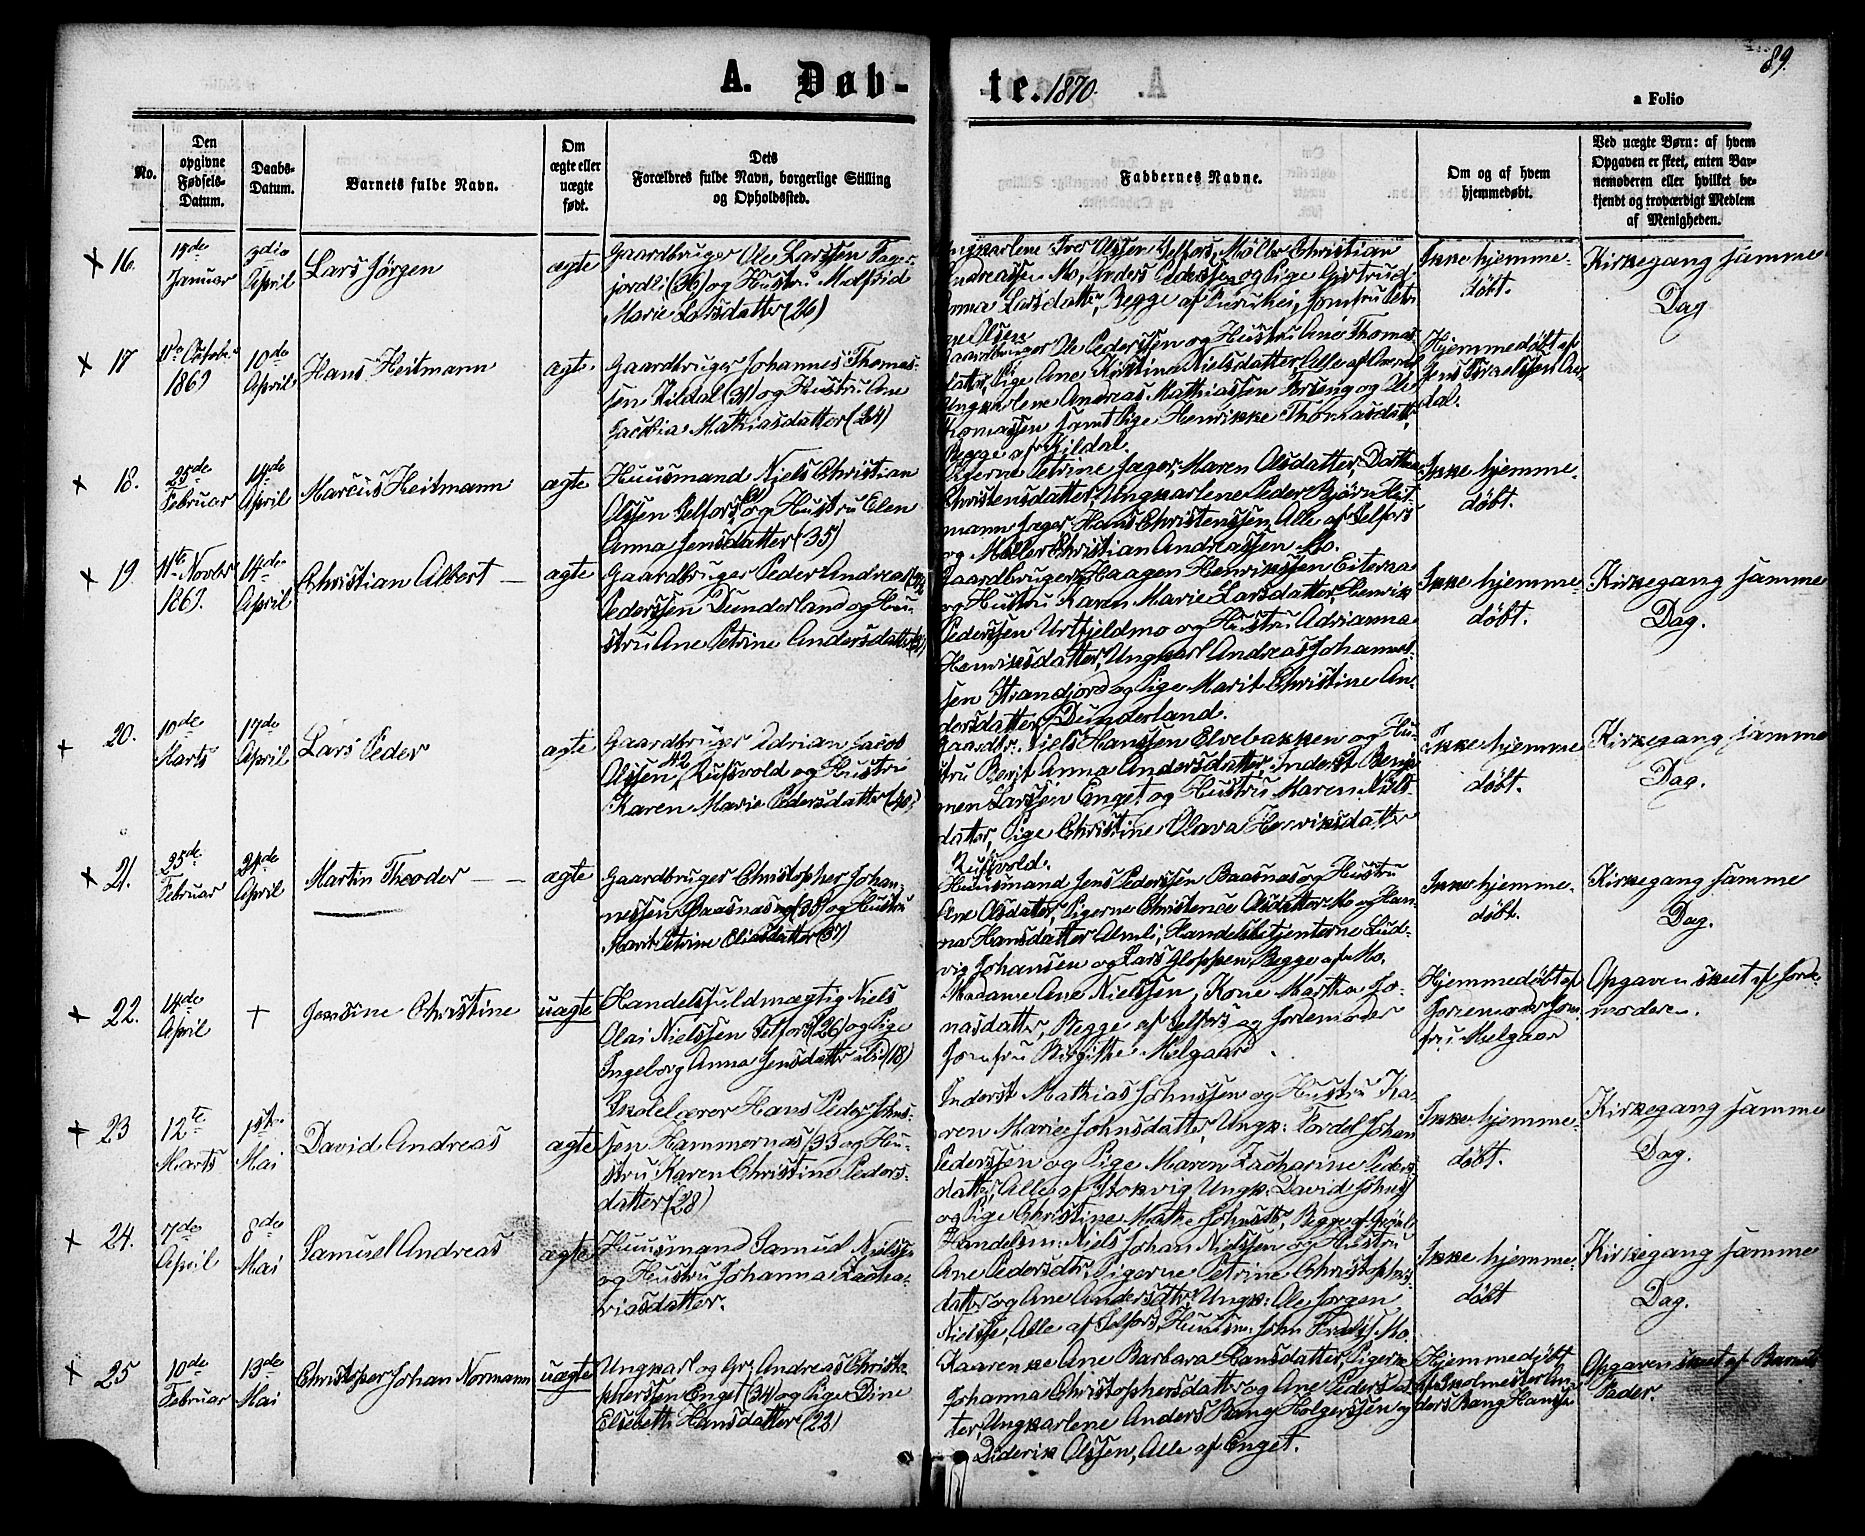 89.
A. Døb-
te. 1870.
a Folio
No.
Den
opgivne
Fødsels-
Datum.
Daabs-
Datum.
Barnets fulde Navn.
Om
ægte eller
uægte
født.
Dets
Forældres fulde Navn, borgerlige Stilling
og Opholdssted.
Faddernes Navne.
Om og af hvem
hjemmedøbt.
Ved uægte Børn: af hvem
Opgaven er skeet, enten Bar-
nemoderen eller hvilket be-
kjendt og troværdigt Medlem
af Menigheden.
16.
Januar
3die
April
Lars Jörgen
ægte
Gaardbruger Ole Larssen Fager-
jordli (36) og Hustru Malfrid
Marie Larsdatter (26)
Ungkarlene Iver Olssen Selfors, Möller Christian
Andreassen Mo, Anders Pederssen og Pige Gjertrud
Anna Larsdatter, Begge af
Olsen
Ikke hjemme-
döbt.
Kirkegang samme
Dag
17
Octobr
1869
10de
April
Hans Heitmann
ægte.
Gaardbruger Johannes Thomas-
sen Kildal (31) og Hustru Ane
Jacobia Mathiasdatter (24)
Gaardbruger Ole Pederssen og Hustru Ane Thomas-
datter, Pige Ane Kristina Nielsdatter, Alle af
Ungkarlene Andreas Mathiassen og Ole
Thomassen samt Pige Henrikke Thomasdatter,
Begge af Kildal.
Hjemmedöbt af
Jens Israelssen
dal.
18.
25de
Februar
14de
April
Marcus Heitmann
ægte
Huusmand Niels Christian
Olssen Selfors og Hustru Elen
Anna Jensdatter (35)
Pigerne Petrine Jæger, Maren Olsdatter, Dorthea
Christensdatter, Ungkarlene Peder Björn Heit-
mann Jæger, Hans Christenssen, Alle af Selfors
og Möller Christian Andreassen Mo.
Ikke hjemme-
döbt.
19
11te Novbr
1869.
14de
April
Christian Albert —
ægte
Gaardbruger Peder Andreas
Pederssen Dunderland og Hu-
stru Ane Petrine Andersdatter
Gaardbruger Haagen Henrikssen Eiteraa
og Hustru Karen Marie Larsdatter, Henrik
Pederssen Urtfjeldmo og Hustru Adrianna
Henriksdatter, Ungkarl Andreas Johannes-
sen Strandjord og Pige Marit Christine An-
dersdatter Dunderland.
Ikke hjemme-
döbt.
Kirkegang samme
Dag.
20.
10de
Marts
17de
April
Lars Peder
ægte
Gaardbruger Adrian Jacob
Olssen Rufsvold og Hustru
Karen Marie Pedersdatter (40)
Gaardbr. Niels Hanssen Elvebakken og Hu-
stru Berit Anna Andersdatter, Inderst Benja-
men Larssen Enget og Hustru Maren Nils-
datter, Pige Christine Olava Henriksdatter
Rufsvold.
Ikke hjemme
döbt.
Kirkegang samme
Dag.
21.
25de
Februar
24de
April
Martin Theodor — —
ægte
Gaardbruger Christopher Johan-
nessen Baasnæs (38) og Hustru
Marit Petrine Eliasdatter (37)
Huusmand Jens Pederssen Baasnæs og Hustru
Ane Olsdatter, Pigerne Christence Olsdatter Mo og Han-
na Hansdatter Almli, Handelsbetjenterne Lud-
vig Johansen og Lars Gloppen, Begge af Mo.
Ikke hjemme-
döbt.
Kirkegang samme
Dag.
22.
14de
April
+
Jensine Christine
uægte
Handelsfuldmægtig Niels
Olai Nielssen Selfors (26) og Pige
Ingeborg Anna Jensdatter ibid (18)
Madame Ane Nielssen, Kone Martha Jo-
nasdatter, Begge af Selfors og Jordemoder
Jomfru Birgithe Melgaar
Hjemmedöbt af
Jordemoder Jom-
fru Melgaar
Opgaven skeet af Jorde-
moderen.
23
12te
Marts
1ste
Mai
David Andreas
ægte
Skolelærer Hans Peder Johns-
sen Hammernæs (33 og Hu-
stru Karen Christine Peders-
datter (28)
Inderst Mathias Johnssen og Hustru Ka-
ren Marie Johnsdatter, Ungk: Tordel Johan
Pederssen og Pige Maren Zacharine Peders-
datter, Alle af Stokvig, Ungk: David Johns
og Pige Christine Mathe Johnsdtr, Begge af
Ikke hjemme-
döbt.
Kirkegang samme
Dag.
24.
7de
April
8de
Mai
Samuel Andreas
ægte
Huusmand Samuel Nielssen
og Hustru Johanna Zacha-
riasdatter.
Handelsm: Niels Johan Nielssen og Hustru
Ane Pedersdtr, Pigerne Petrine Christophers-
datter og Ane Andersdtr, Ungk: Ole Jörgen
Nielssen, Alle af Selfors, Huusm: John Mo.
Ikke hjemme-
döbt
Kirkegang samme
Dag.
25
10de
Februar
13de
Mai
Christopher Johan Normann
uægte
Ungkarl og Gr. Andreas Christo-
pherssen Enget (34) og Pige Dine
Elisabeth Hansdatter (22)
Kaarenke Ane Barbara Hansdatter, Pigerne
Johanna Christophersdatter og Ane Pedersdat-
ter, Ungkarlene Anders Bang Holgerssen og
Diderik Olssen, Alle af Enget.
Hjemmedöbt
af Skolmester An-
ders Bang Hanssen
Opgaven skeet af Barnets
Fader.